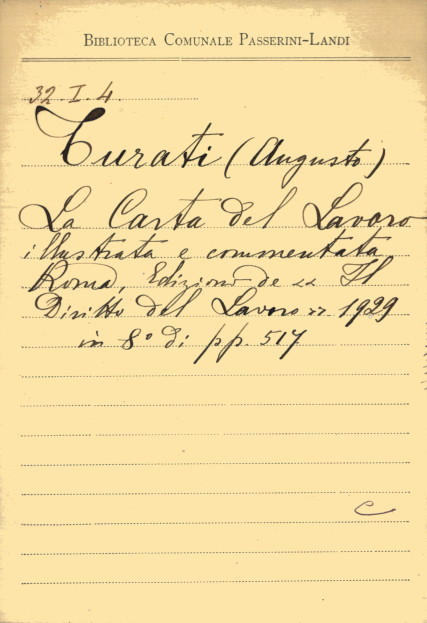 BIBLIOTECA COMUNALE PASSERINI-LANDI
32.I.4.
Turati (Augusto)
La Carta del Lavoro
illustrata e commentata
Roma, Edizione de << Il
Diritto del Lavoro >> 1929
in 8° di pp. 517
C